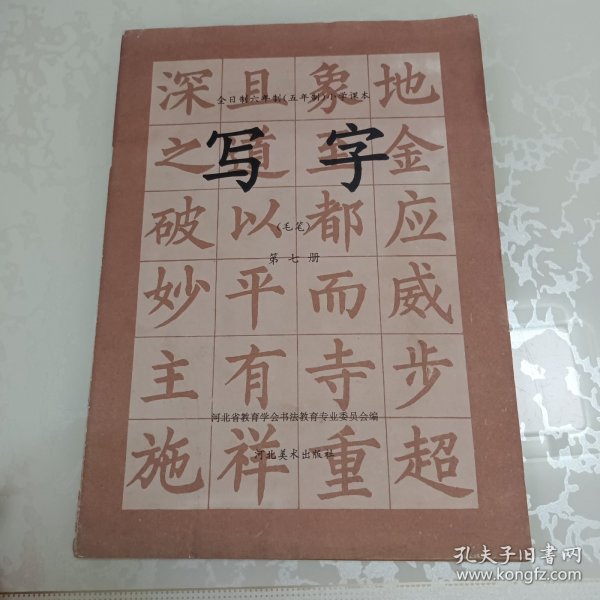 全日制六年制(五年制)小学课本
写字
(毛笔)
第七册
河北省教育学会书法教育专业委员会编
河北美术出版社
深且象地
之道至金
破以都应
妙平而威
主有寺步
施祥重超
孔夫子旧书网
www.kongfz.com